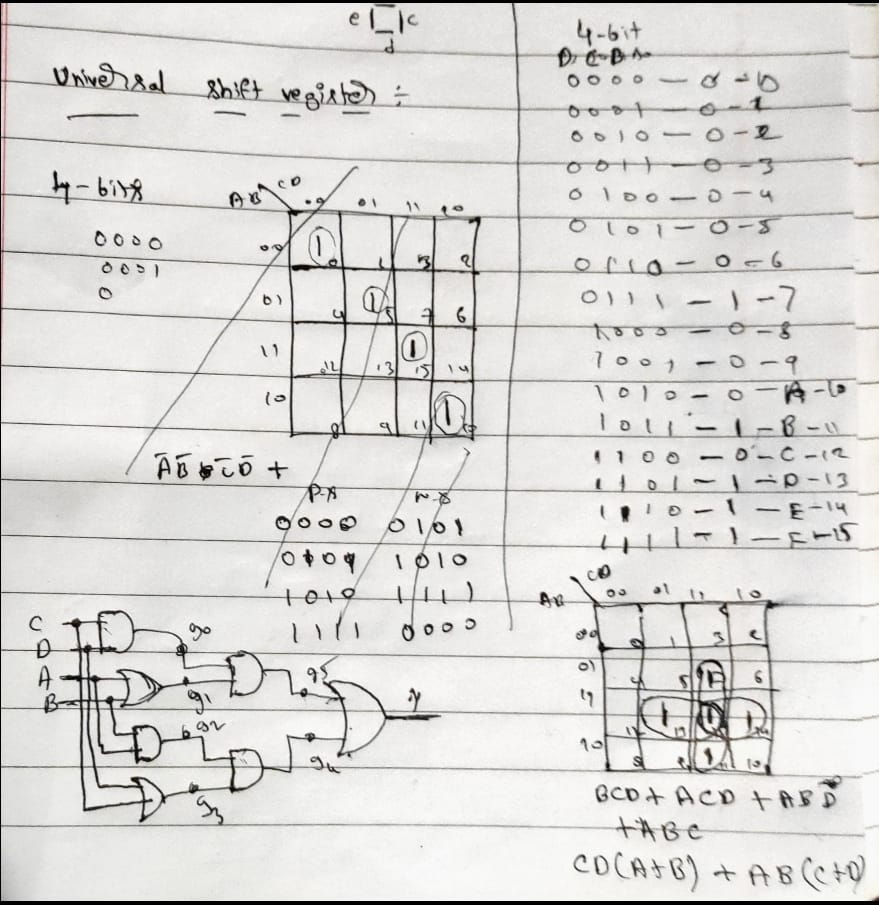 e c
d
Universal shift register ÷
4-bits
0000
0001
0
AB CD
00 01 11 10
00 1 0 1 3 2
01 4 1 5 7 6
11 12 13 1 15 14
10 8 9 11 1 10
ĀB̄C̄D̄ +
P-S N-S
0000 0101
0101 1010
1010 1111
1111 0000
C
D
A
B
g0
g1
g2
g3
g5
g4
y
4-bit
D C B A
0000 - 0 - 0
0001 - 0 - 1
0010 - 0 - 2
0011 - 0 - 3
0100 - 0 - 4
0101 - 0 - 5
0110 - 0 - 6
0111 - 1 - 7
1000 - 0 - 8
1001 - 0 - 9
1010 - 0 - A - 10
1011 - 1 - B - 11
1100 - 0 - C - 12
1101 - 1 - D - 13
1110 - 1 - E - 14
1111 - 1 - F - 15
AB CD
00 01 11 10
00 0 1 3 2
01 4 5 1 7 6
11 12 1 13 1 1 14
10 8 9 1 11 10
BCD + ACD + ABD
+ ABC
CD(A+B) + AB(C+D)